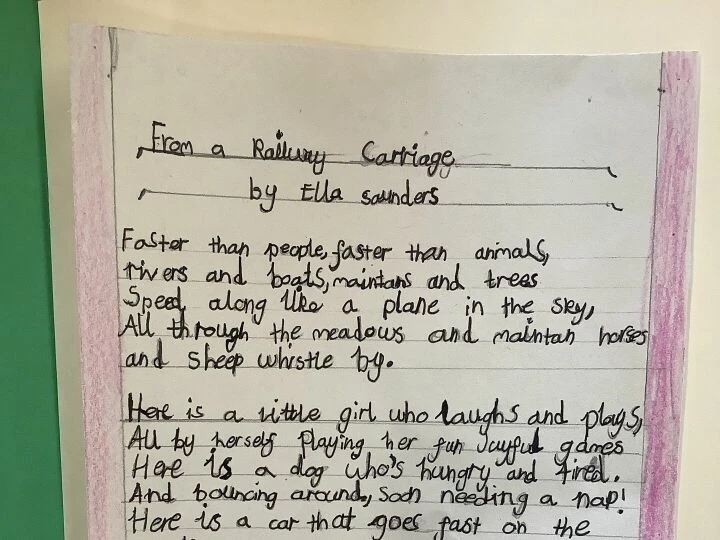 From a Railway Carriage
by Ella saunders
Faster than people, faster than animals,
rivers and boats, maintans and trees
Speed along like a plane in the sky,
All through the meadows and maintan horses
and sheep whistle by.
Here is a little girl who laughs and plays,
All by herself playing her fun Joyful games
Here is a dog who's hungry and tired.
And bouncing around, soon needing a nap!
Here is a car that goes fast on the